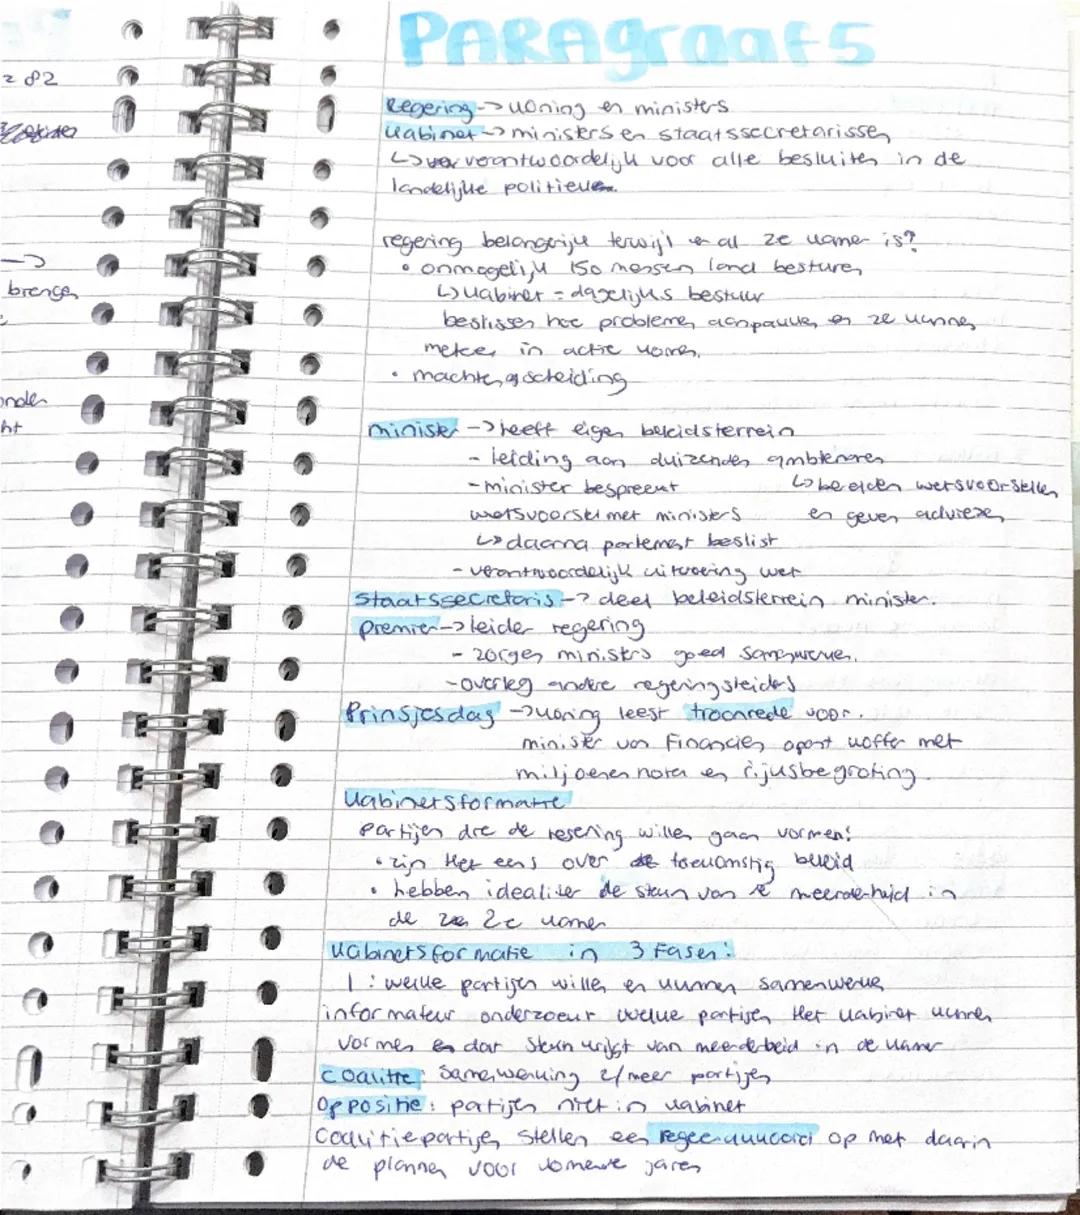 2 82
brengen
onder
ht
PARAgraaf 5
Regering -> koning en ministers
Kabinet -> ministers en staatssecretarissen
↳ verantwoordelijk voor alle besluiten in de
landelijke politiek
regering belangerijk terwijl er al 2e kamer is?
• onmogelijk 150 mensen land besturen
↳ kabinet = dagelijks bestuur
beslissen hoe problemen aanpakken en ze kunnen
meteen in actie komen.
• machten scheiding
minister -> heeft eigen beleidsterrein
- leiding aan duizenden ambtenaren
- minister bespreekt ↳ bereiden wetsvoorstellen
wetsvoorstel met ministers en geven adviezen
↳ daarna parlement beslist
- verantwoordelijk uitvoering wet
Staatssecretaris -> deel beleidsterrein minister.
premier -> leider regering
- zorgen ministers goed samenwerken.
- overleg andere regeringsleiders
Prinsjesdag -> koning leest troonrede voor.
minister van Financiën opent koffer met
miljoenen nota en rijksbegroting.
Kabinetsformatie
Partijen die de regering willen gaan vormen:
• zijn Het eens over toekomstig beleid
• hebben idealiter de steun van de meerderheid in
de 2e kamer
Kabinetsformatie in 3 Fasen:
1: welke partijen willen en kunnen samenwerken
informateur onderzoekt welke partijen Het kabinet kunnen
vormen en dat steun krijgt van meerderheid in de kamer
coalitie: Samenwerking 2/meer partijen
Oppositie: partijen niet in kabinet
Coalitiepartijen stellen een regeerakkoord op met daarin
de plannen voor komende jaren